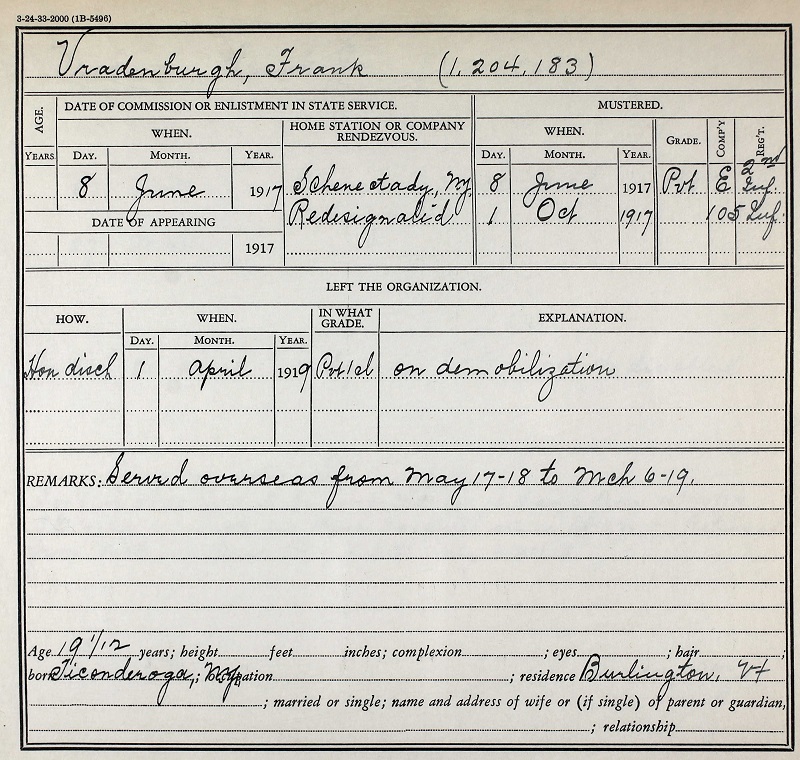 3-24-33-2000 (1B-5496)
Vradenburgh, Frank (1,204,183)
AGE. DATE OF COMMISSION OR ENLISTMENT IN STATE SERVICE. MUSTERED.
WHEN. HOME STATION OR COMPANY RENDEZVOUS. WHEN. GRADE. COMP'Y REG'T.
YEARS DAY. MONTH. YEAR. DAY. MONTH. YEAR.
8 June 1917 Schenectady, NY 8 June 1917 Pvt E 2nd Inf.
DATE OF APPEARING Redesignated 1 Oct 1917 105 Inf.
1917
LEFT THE ORGANIZATION.
HOW. WHEN. IN WHAT GRADE. EXPLANATION.
DAY. MONTH. YEAR.
Hon disch 1 April 1919 Pvt 1cl on demobilization
REMARKS: Served overseas from May 17-18 to Mch 6-19.
Age 19 1/12 years; height feet inches; complexion ; eyes ; hair ;
born Ticonderoga, NY; occupation ; residence Burlington, Vt
; married or single; name and address of wife or (if single) of parent or guardian,
; relationship